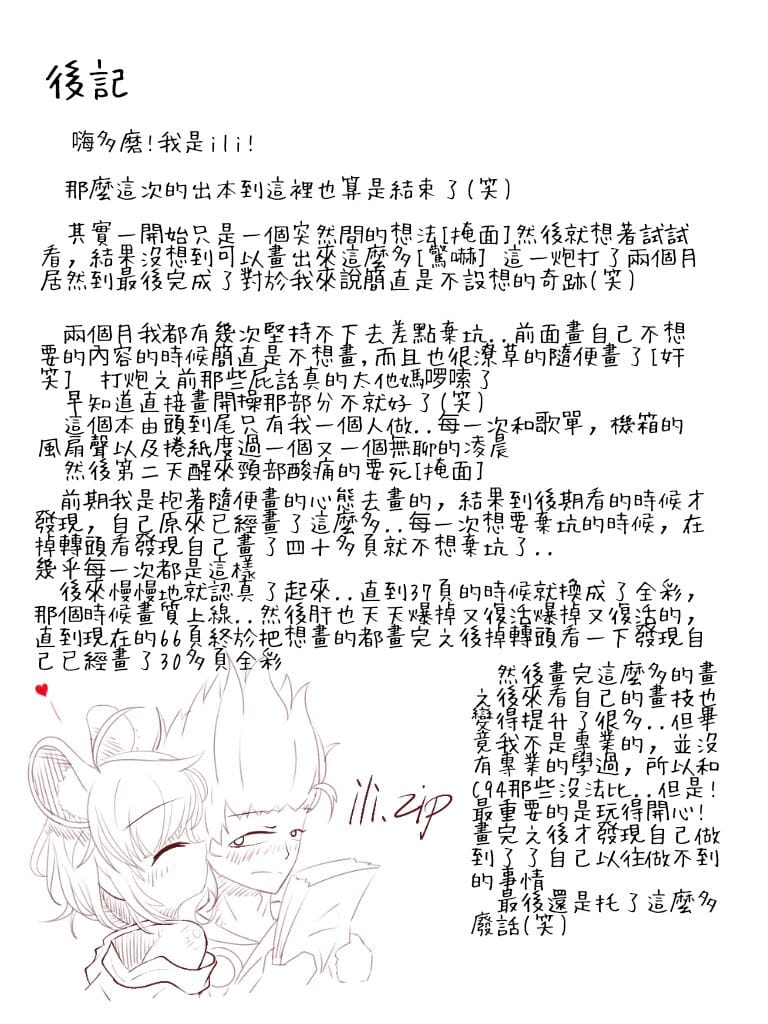 後記
嗨多磨!我是ili!
那麼這次的出本到這裡也算是結束了(笑)
其實一開始只是一個突然間的想法[掩面]然後就想著試試
看,結果沒想到可以畫出來這麼多[驚嚇] 這一炮打了兩個月
居然到最後完成了對於我來說簡直是不設想的奇跡(笑)
兩個月我都有幾次堅持不下去差點棄坑..前面畫自己不想
要的內容的時候簡直是不想畫,而且也很潦草的隨便畫了[奸
笑] 打炮之前那些屁話真的太他媽啰嗦了
早知道直接畫開操那部分不就好了(笑)
這個本由頭到尾只有我一個人做..每一次和歌單,機箱的
風扇聲以及捲紙度過一個又一個無聊的凌晨
然後第二天醒來頸部酸痛的要死[掩面]
前期我是抱著隨便畫的心態去畫的,結果到後期看的時候才
發現,自己原來已經畫了這麼多..每一次想要棄坑的時候,在
掉轉頭看發現自己畫了四十多頁就不想棄坑了..
幾乎每一次都是這樣
後來慢慢地就認真了起來..直到37頁的時候就換成了全彩,
那個時候畫質上線..然後肝也天天爆掉又復活爆掉又復活的,
直到現在的66頁終於把想畫的都畫完之後掉轉頭看一下發現自
己已經畫了30多頁全彩
然後畫完這麼多的畫
之後來看自己的畫技也
變得提升了很多..但畢
竟我不是專業的,並沒
有專業的學過,所以和
C94那些沒法比..但是!
最重要的是玩得開心!
畫完之後才發現自己做
到了了自己以往做不到
的事情
最後還是托了這麼多
廢話(笑)
ili.zip